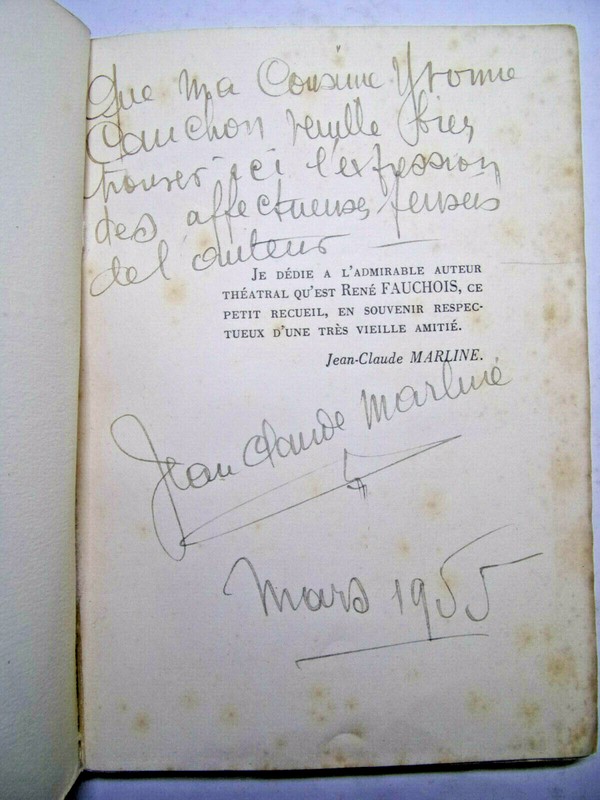 Que ma Cousine Yvonne
Cauchon veuille bien
trouver ici l'expression
des affectueuses pensées
de l'auteur —
JE DÉDIE A L'ADMIRABLE AUTEUR
THÉATRAL QU'EST RENÉ FAUCHOIS, CE
PETIT RECUEIL, EN SOUVENIR RESPEC-
TUEUX D'UNE TRÈS VIEILLE AMITIÉ.
Jean-Claude MARLINE.
Jean Claude Marline
Mars 1955